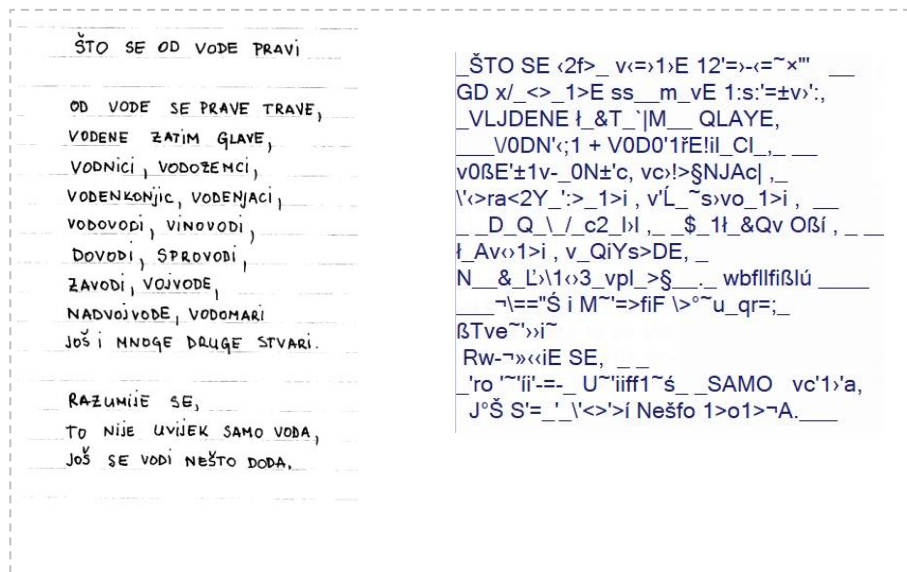 ŠTO SE OD VODE PRAVI
OD VODE SE PRAVE TRAVE,
VODENE ZATIM GLAVE,
VODNICI, VODOZEMCI,
VODENKONJIC, VODENJACI,
VODOVODI, VINOVODI,
DOVODI, SPROVODI,
ZAVODI, VOJVODE,
NADVOJVODE, VODOMARI
JOŠ I MNOGE DRUGE STVARI.
RAZUMIJE SE,
TO NIJE UVIJEK SAMO VODA,
JOŠ SE VODI NEŠTO DODA.
_ŠTO SE ‹2f>_ v‹=›1›E 12'=›-‹=~×"' __
GD x/_<>_1>E ss__m_vE 1:s:'=±v›':,
_VLJDENE ł_&T_`|M__ QLAYE,
___\/0DN'‹;1 + V0D0'1řE!iI_CI_,_ __
v0ßE'±1v-_0N±'c, vc›!>§NJAc| ,_
\'‹>ra<2Y_':>_1>i , v'Ĺ_~s›vo_1>i , __
_ _D_Q_\_/_c2_I›I ,_ _$_1ł_&Qv Oßí , _ __
ł_Av‹›1>i , v_QiYs>DE, _
N__&_Ľ›\1‹›3_vpl_>§__._ wbfllfißlú ____
___¬\=="Ś i M~'=>fiF \>°~u_qr=;_
ßTve~'››i~
Rw-¬»‹‹iE SE, _ _
_'ro '~'íi'-=-_ U~'iiff1~ś_ _SAMO vc'1›'a,
J°Š S'=_'_\'<>'>í Nešfo 1>o1>¬A.___